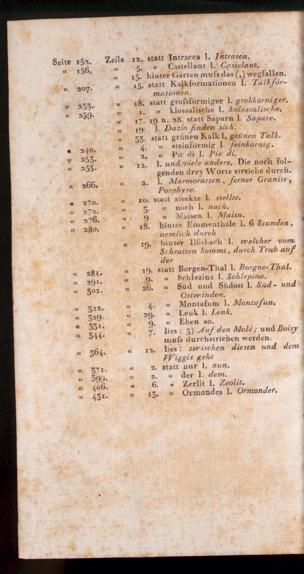 Seite 152. Zeile 12. statt Intracca l. Intrasca.
« 156. « 5. « Castellant l. Castelant.
« 15. hinter Gärten muſs das (,) wegfallen.
« 207. « 15. statt Kalkformationen l. Talkfor-
mationen.
« 233. « 18. statt groſsförmiger l. grobkörniger.
« 239. « 1. « klossalische l. kolossalische.
« 17. 19 u. 28. statt Saparn l. Sapare.
« 19 l. Dazio finden sich.
« 33. statt grünen Kalk l. grünen Talk.
« 240. « 4. « steinförmig l. feinkörnig.
« 253. « 2. « Pie di l. Pie di.
« 255. « 12. l. und viele andere. Die noch fol-
genden drey Worte streiche durch.
« 266. « 2. l. Marmorarten, ferner Granite,
Porphyre.
« 270. « 10. statt steckte l. stellte.
« 272. « 5. « noch l. nach.
« 276. « 9 « Maisen l. Maisn.
« 280. « 18. hinter Emmenthale l. 6 Stunden,
nemlich durch
« 19. hinter Illisbach l. welcher vom
Schratten kommt, durch Trub auf
der
« 281. « 19. statt Borgen-Thal l. Borgne-Thal.
« 291. « 9. « Schlezina l. Schlepina.
« 302. « 26. « Süd und Südost l. Süd- und
Ostwinden.
« 322. « 4. « Montafum l. Montafun.
« 329. « 29. « Leuk l. Lenk.
« 331. « 9. « Eben so.
« 344. « 7. lies: 3) Auf den Molé; und Boisy
muſs durchstrichen werden.
« 364. « 12. lies: zwischen diesen und dem
Wiggis geht
« 371. « 2. statt nur l. nun.
« 399. « 2. « der l. dem.
« 406. « 6. « Zerlit l. Zeolit.
« 431. « 13. « Ormondes l. Ormonder.